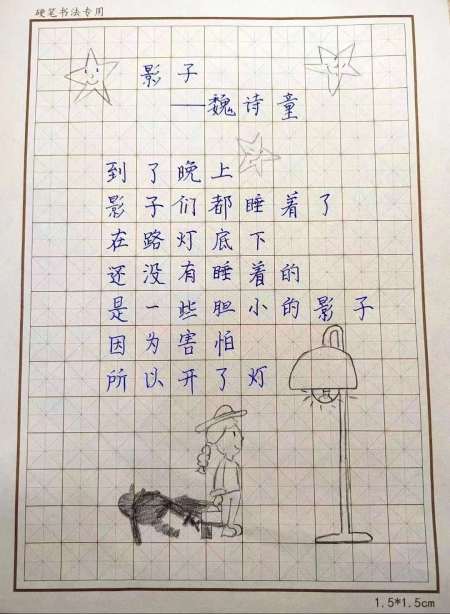 硬笔书法专用
影子
——魏诗童
到了晚上
影子们都睡着了
在路灯底下
还没有睡着的
是一些胆小的影子
因为害怕
所以开了灯
1.5*1.5cm